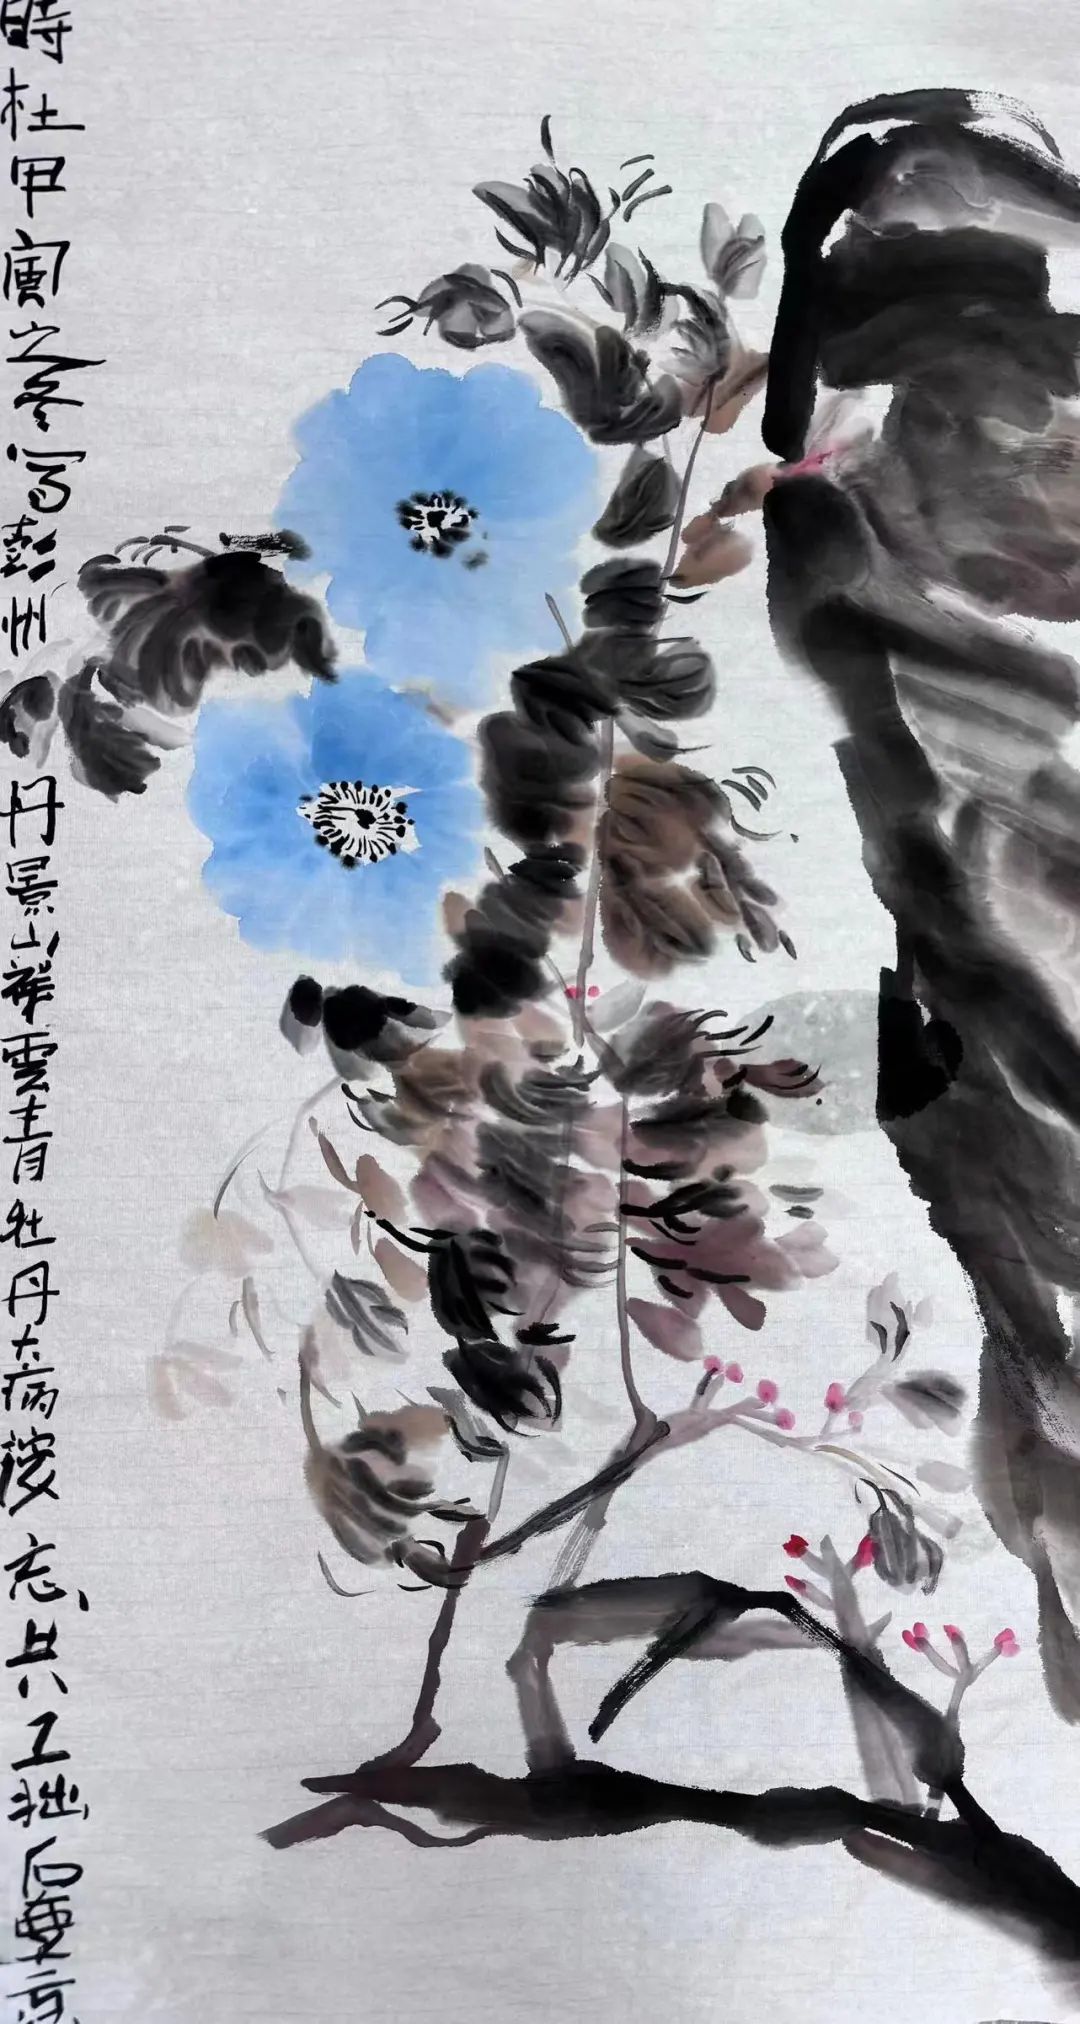 時杜甲寅之冬写彭州丹景山祥雲青牡丹大病後忘其工拙石